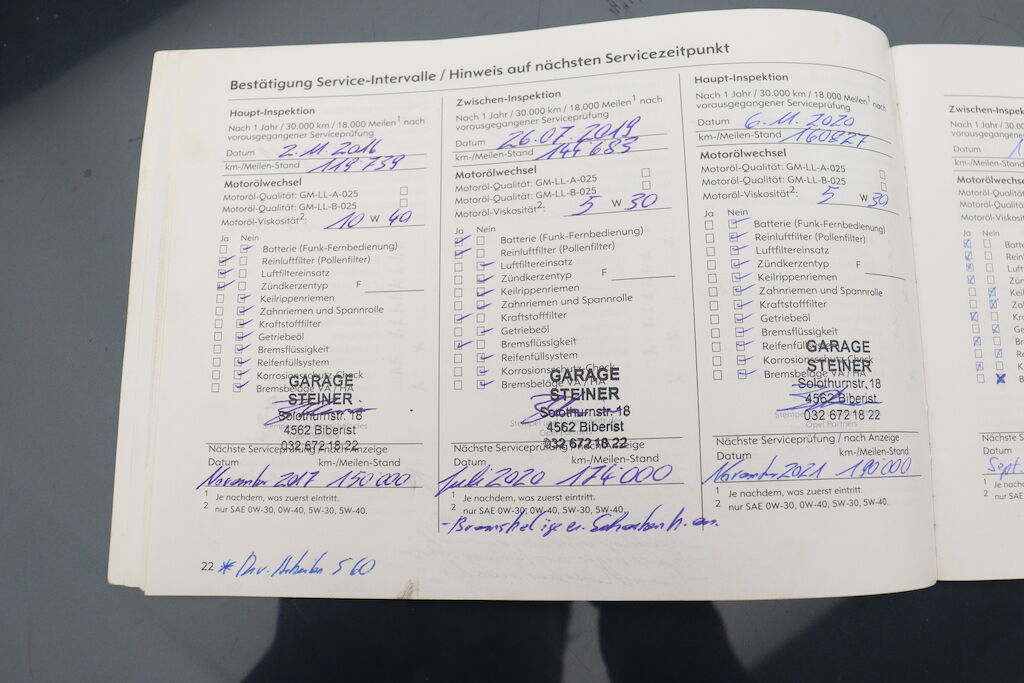 Bestätigung Service-Intervalle / Hinweis auf nächsten Servicezeitpunkt
Haupt-Inspektion
Nach 1 Jahr / 30.000 km / 18.000 Meilen¹ nach
vorausgegangener Serviceprüfung
Datum 2.11.2016
km-/Meilen-Stand 119 739
Motorölwechsel
Motoröl-Qualität: GM-LL-A-025
Motoröl-Qualität: GM-LL-B-025
Motoröl-Viskosität²: 10 W 40
Ja Nein
Batterie (Funk-Fernbedienung)
Reinluftfilter (Pollenfilter)
Luftfiltereinsatz
Zündkerzentyp F
Keilrippenriemen
Zahnriemen und Spannrolle
Kraftstofffilter
Getriebeöl
Bremsflüssigkeit
Reifenfüllsystem
Korrosionsschutz-Check
Bremsbeläge VA / HA
GARAGE
STEINER
Solothurnstr. 18
4562 Biberist
032 672 18 22
Nächste Serviceprüfung / nach Anzeige
Datum km-/Meilen-Stand
November 2017 150'000
¹ Je nachdem, was zuerst eintritt.
² nur SAE 0W-30, 0W-40, 5W-30, 5W-40.
22
Zwischen-Inspektion
Nach 1 Jahr / 30.000 km / 18.000 Meilen¹ nach
vorausgegangener Serviceprüfung
Datum 26.07.2019
km-/Meilen-Stand 144 683
Motorölwechsel
Motoröl-Qualität: GM-LL-A-025
Motoröl-Qualität: GM-LL-B-025
Motoröl-Viskosität²: 5 W 30
Ja Nein
Batterie (Funk-Fernbedienung)
Reinluftfilter (Pollenfilter)
Luftfiltereinsatz
Zündkerzentyp F
Keilrippenriemen
Zahnriemen und Spannrolle
Kraftstofffilter
Getriebeöl
Bremsflüssigkeit
Reifenfüllsystem
Korrosionsschutz-Check
Bremsbeläge VA / HA
GARAGE
STEINER
Solothurnstr. 18
4562 Biberist
032 672 18 22
Nächste Serviceprüfung / nach Anzeige
Datum km-/Meilen-Stand
Juli 2020 174'000
¹ Je nachdem, was zuerst eintritt.
² nur SAE 0W-30, 0W-40, 5W-30, 5W-40.
Haupt-Inspektion
Nach 1 Jahr / 30.000 km / 18.000 Meilen¹ nach
vorausgegangener Serviceprüfung
Datum 6.11.2020
km-/Meilen-Stand 160827
Motorölwechsel
Motoröl-Qualität: GM-LL-A-025
Motoröl-Qualität: GM-LL-B-025
Motoröl-Viskosität²: 5 W 30
Ja Nein
Batterie (Funk-Fernbedienung)
Reinluftfilter (Pollenfilter)
Luftfiltereinsatz
Zündkerzentyp F
Keilrippenriemen
Zahnriemen und Spannrolle
Kraftstofffilter
Getriebeöl
Bremsflüssigkeit
Reifenfüllsystem
Korrosionsschutz-Check
Bremsbeläge VA / HA
GARAGE
STEINER
Solothurnstr. 18
4562 Biberist
032 672 18 22
Opel Partners
Nächste Serviceprüfung / nach Anzeige
Datum km-/Meilen-Stand
November 2021 190'000
¹ Je nachdem, was zuerst eintritt.
² nur SAE 0W-30, 0W-40, 5W-30, 5W-40.
Zwischen-Inspek
Nach 1 Jahr / 30.000
vorausgegangener
Datum
km-/Meilen-Stand
Motorölwechsel
Motoröl-Qualität:
Motoröl-Qualität:
Motoröl-Viskosität
Ja Nein
Nächste S
Datum
Sept.
¹ Je nach
² nur SA